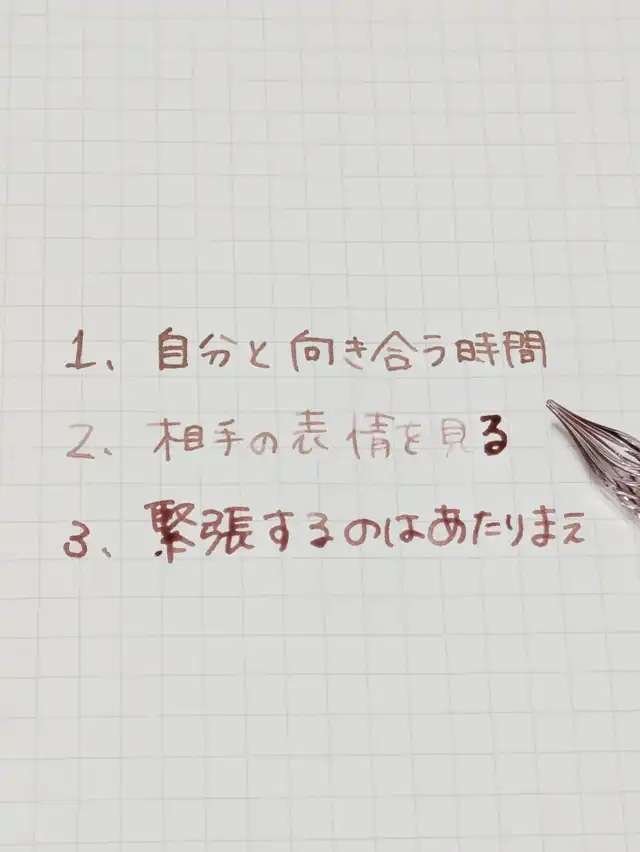 1、自分と向き合う時間
2、相手の表情を見る
3、緊張するのはあたりまえ